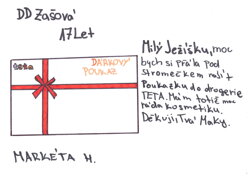 DD Zašová
17 Let
Milý Ježíšku, moc
bych si přála pod
stromečkem najít
Poukazku do drogerie
TETA. Mám totiž moc
ráda kosmetiku.
Děkuji, Tvá Maky.
teta
DÁRKOVÝ
POUKAZ
MARKÉTA H.